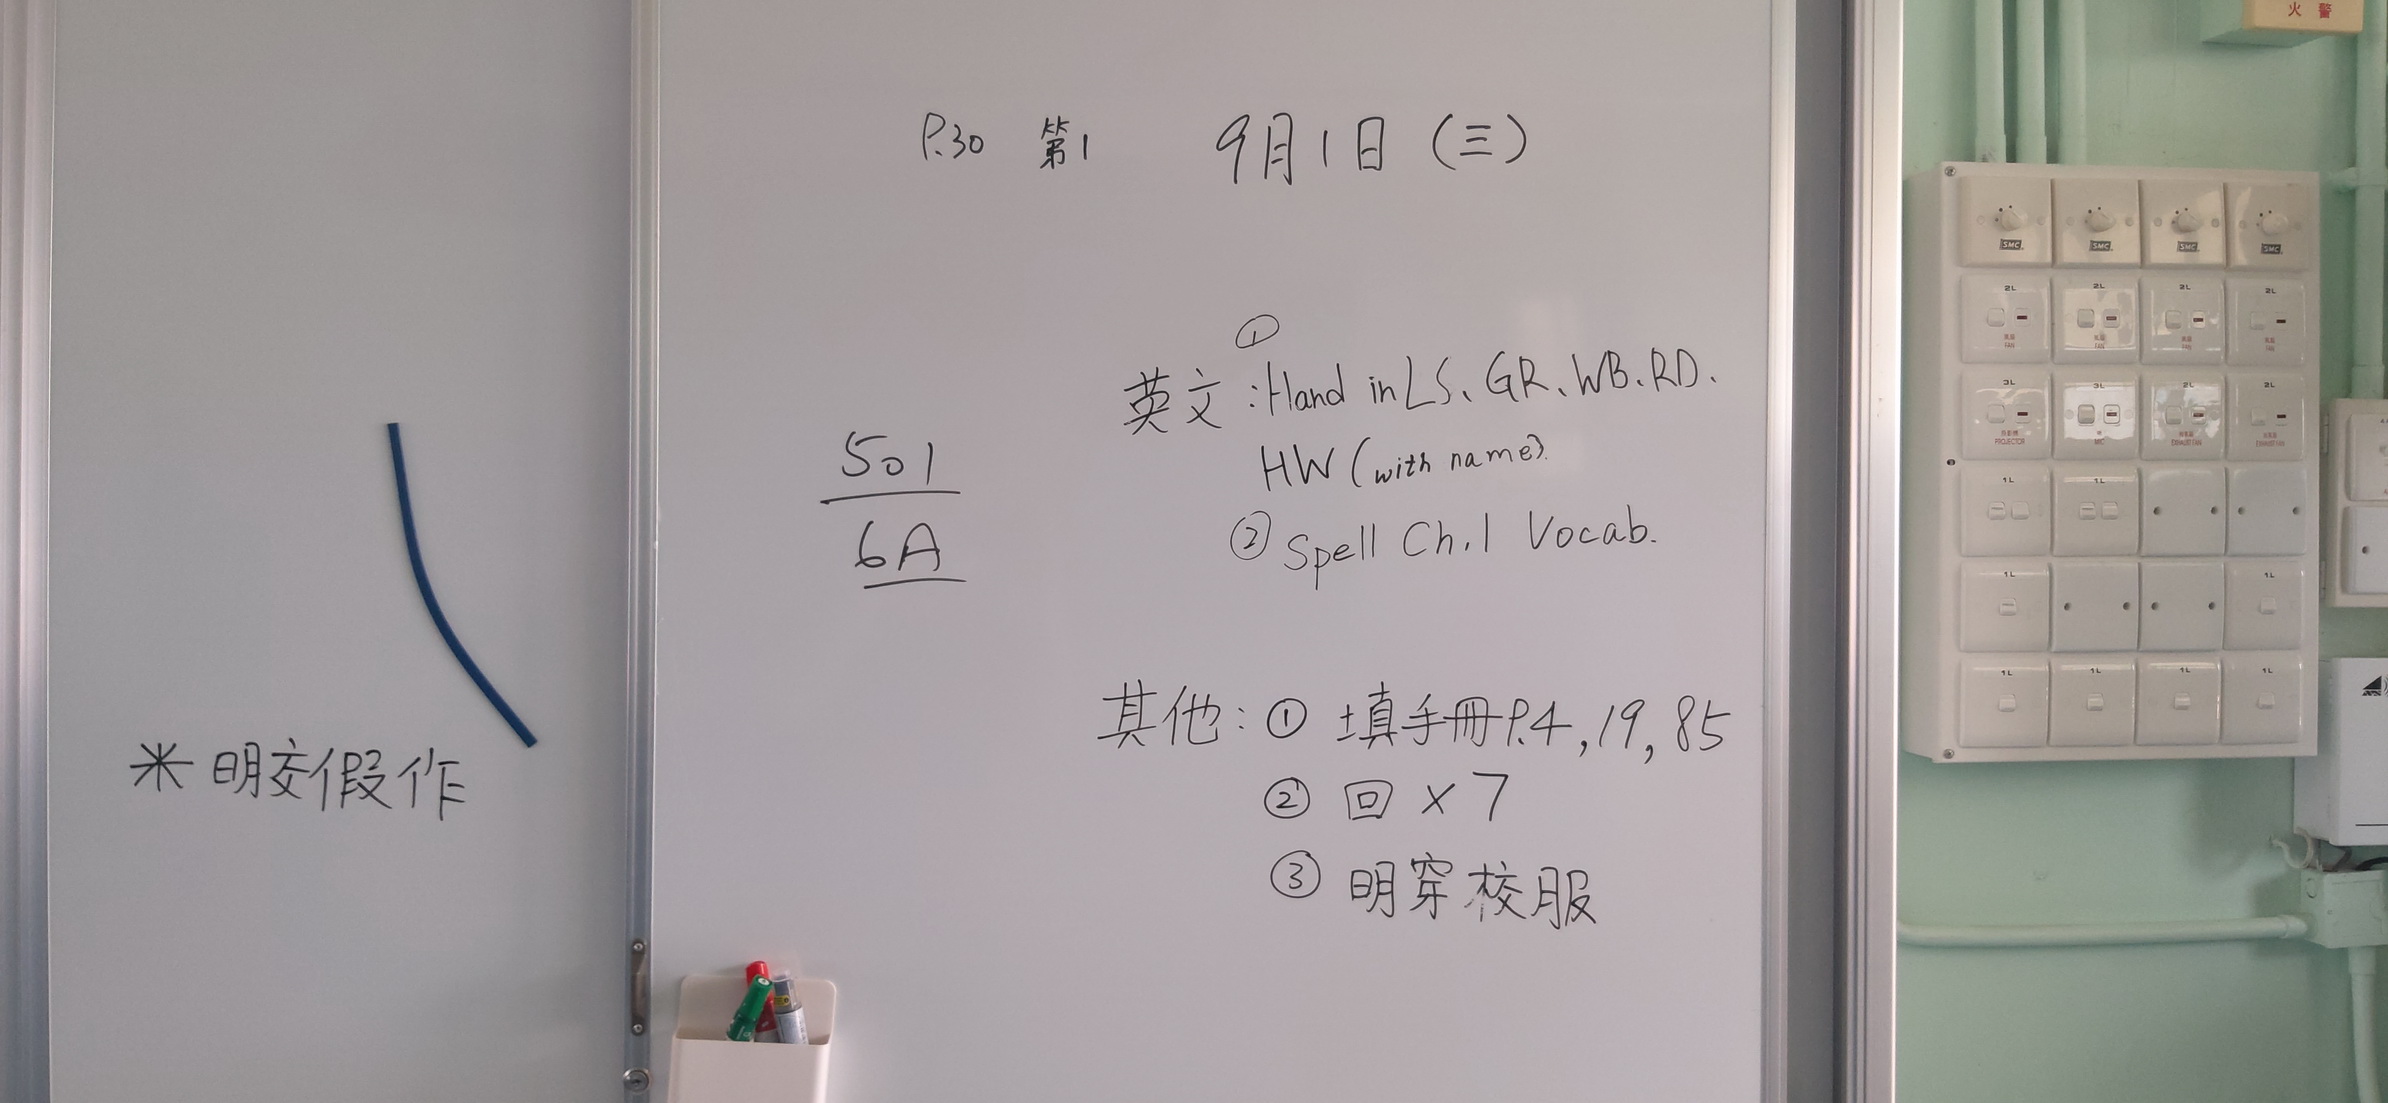 P.30 第1 9月1日(三)
①
英文:Hand in LS、GR、WB、RD、
HW (with name).
② Spell Ch.1 Vocab.
501
6A
其他:① 填手冊P.4, 19, 85
② 回 x 7
③ 明穿校服
米 明交假作
火警
SMC SMC SMC SMC
2L 2L 2L 2L
FAN FAN FAN FAN
3L 3L 2L 2L
PROJECTOR MIC EXHAUST FAN EXHAUST FAN
1L 1L
1L 1L
1L 1L 1L 1L